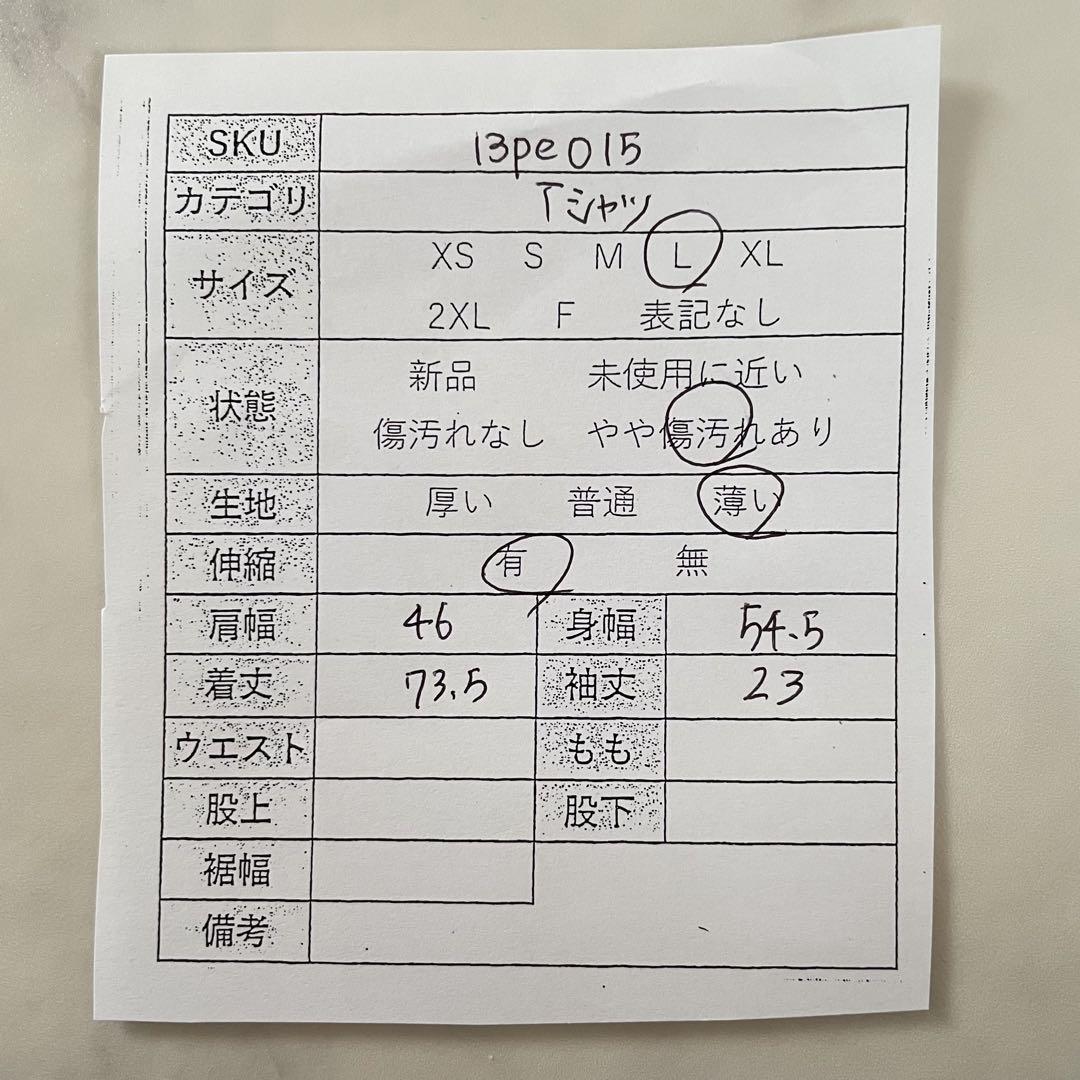 SKU 13pe015
カテゴリ Tシャツ
サイズ XS S M L XL
2XL F 表記なし
状態 新品 未使用に近い
傷汚れなし やや傷汚れあり
生地 厚い 普通 薄い
伸縮 有 無
肩幅 46 身幅 54.5
着丈 73.5 袖丈 23
ウエスト もも
股上 股下
裾幅
備考